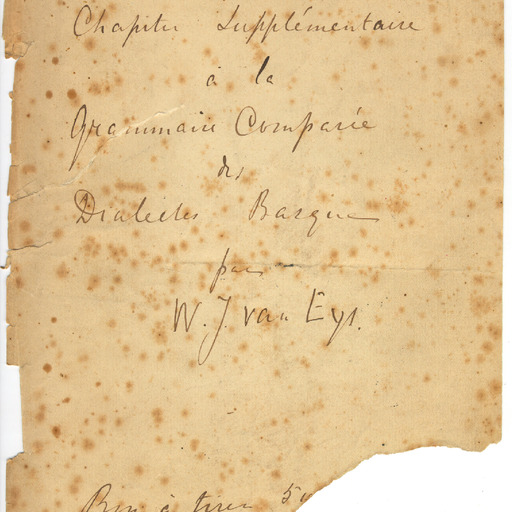 Chapitre Supplémentaire
à la
Grammaire Comparée
des
Dialectes Basques
par
W. J van Eys.
Bon à tirer